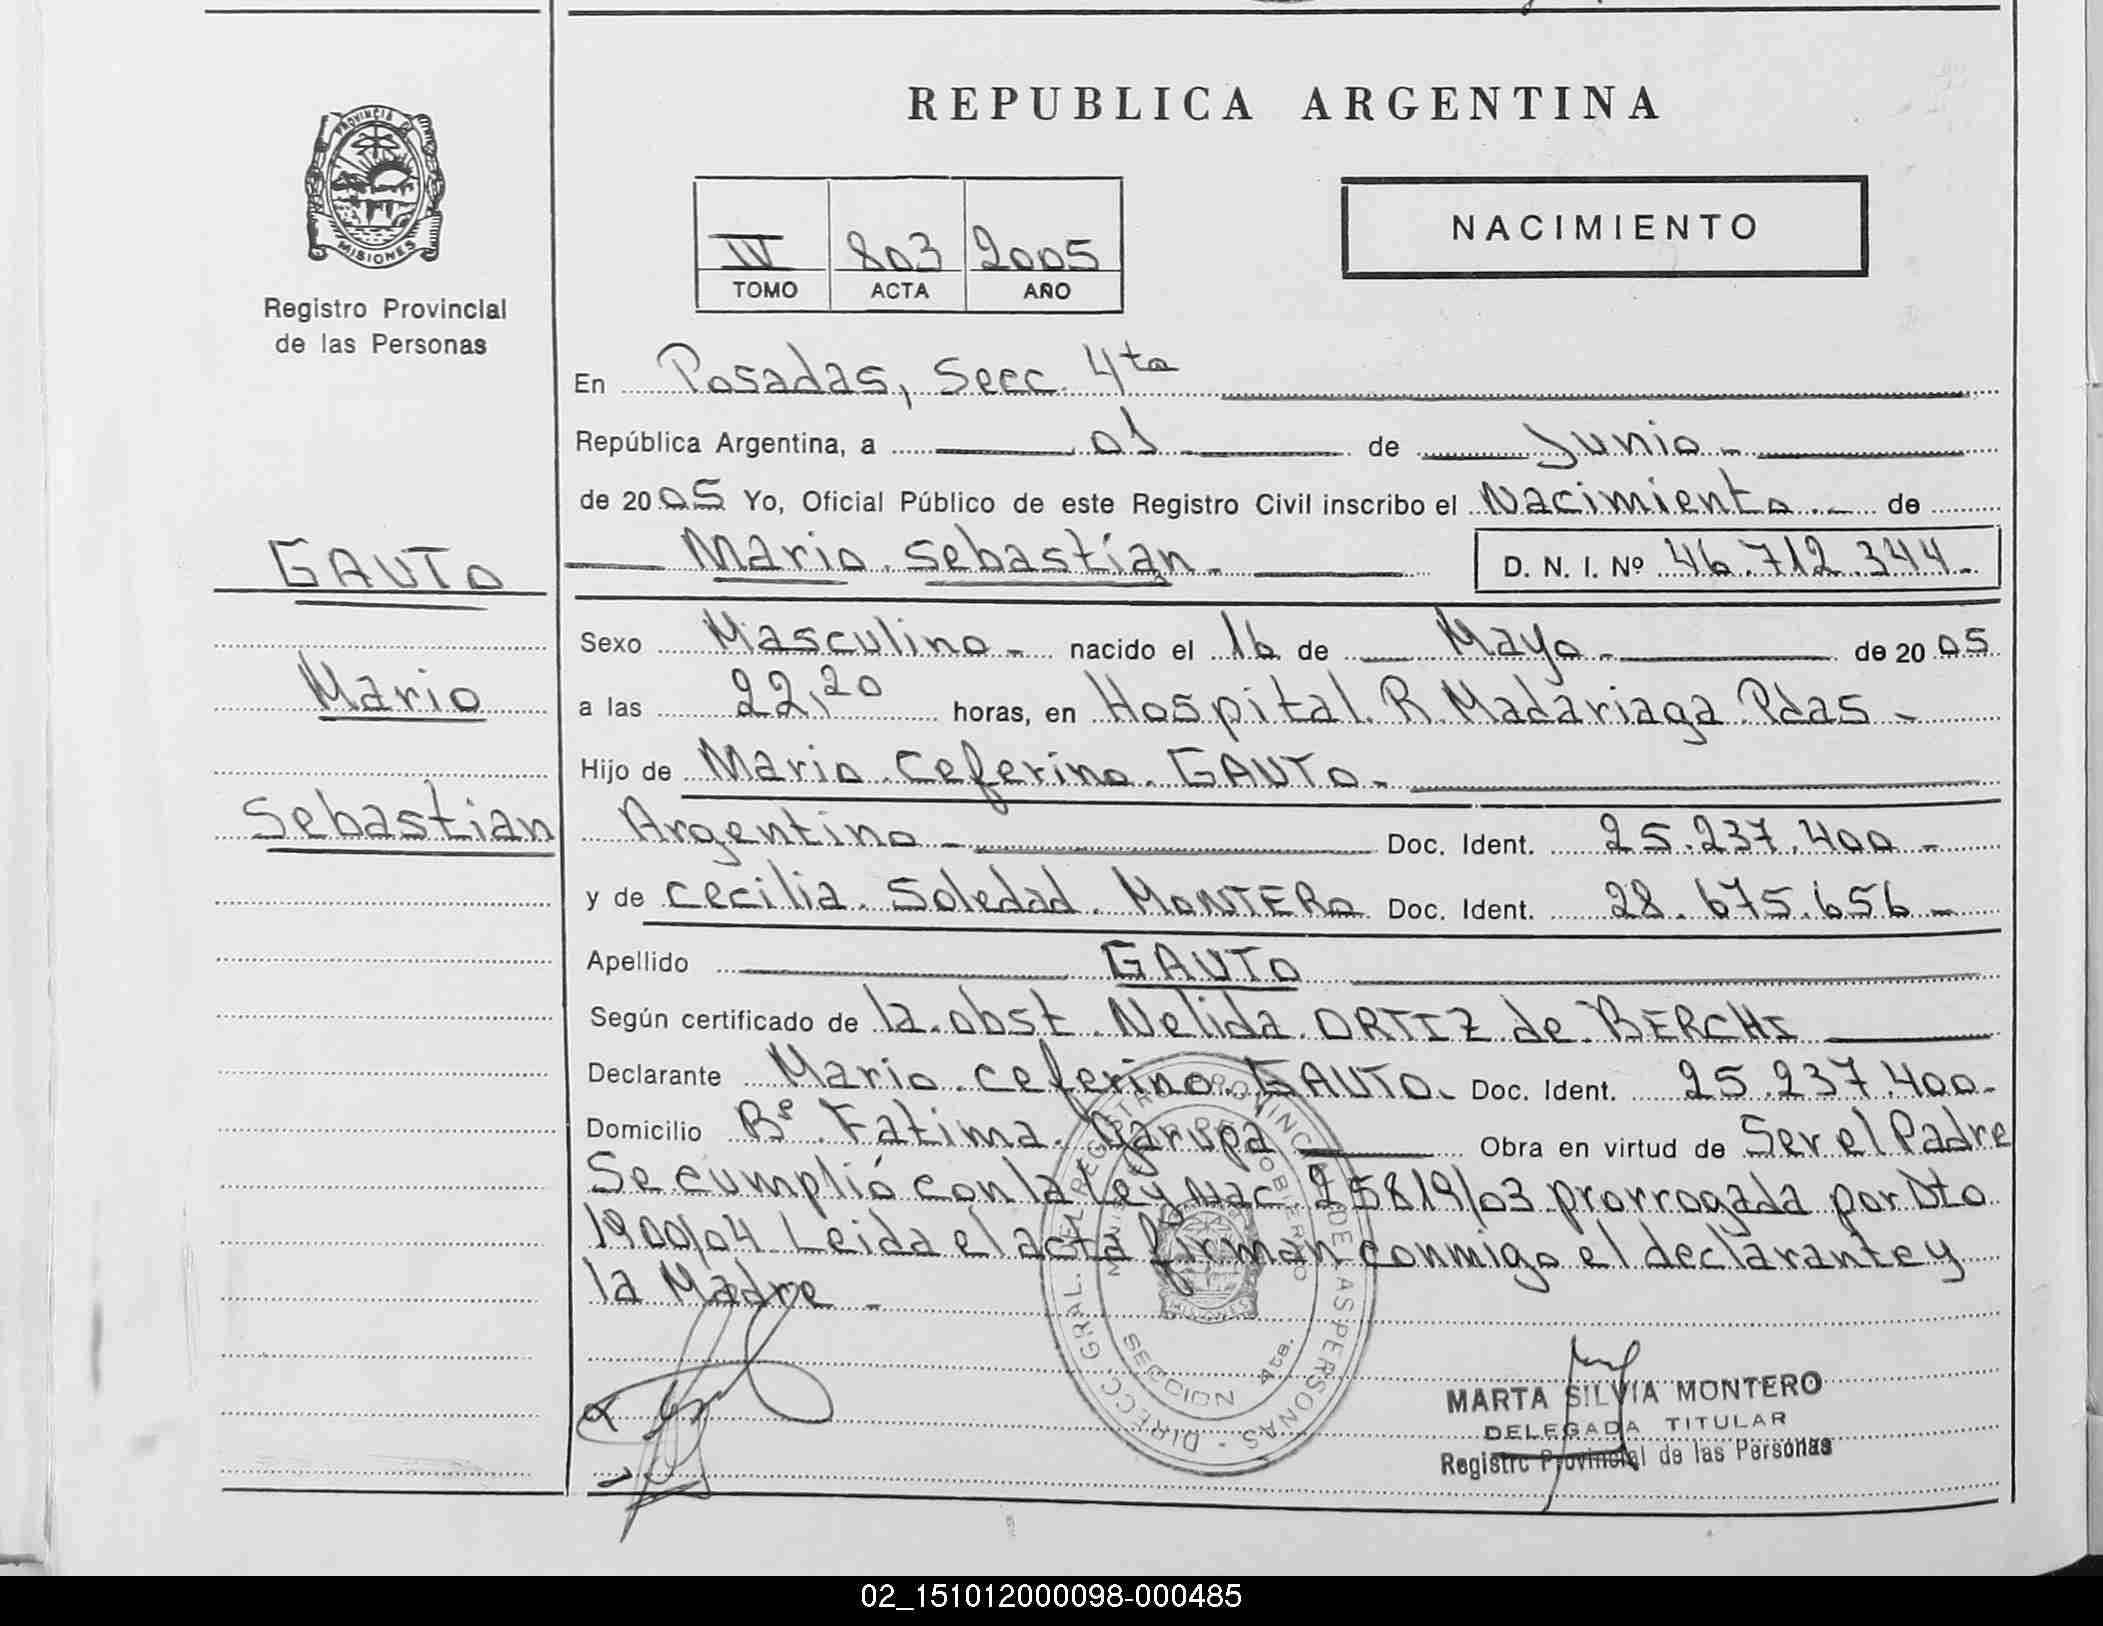 REPUBLICA ARGENTINA
PROVINCIA DE
MISIONES
Registro Provincial
de las Personas
IV 803 2005
TOMO ACTA AÑO
NACIMIENTO
En Posadas, Secc. 4ta
República Argentina, a 01 de Junio -
de 2005 Yo, Oficial Público de este Registro Civil inscribo el Nacimiento - de
Mario Sebastián - D. N. I. Nº 46.712.344-
GAUTO
Mario
Sebastian
Sexo Masculino - nacido el 16 de Mayo - de 2005
a las 22,20 horas, en Hospital R. Madariaga Pdas -
Hijo de Mario Ceferino GAUTO -
Argentino - Doc. Ident. 25.237.400 -
y de Cecilia Soledad MONTERO Doc. Ident. 28.675.656 -
Apellido GAUTO
Según certificado de la obst. Nelida ORTIZ de BERCHI
Declarante Mario Ceferino GAUTO - Doc. Ident. 25.237.400-
Domicilio Bº Fátima. Garupa Obra en virtud de Ser el Padre
Se cumplió con la ley Nac 25819/03 prorrogada por Dto
1900/04 Leida el acta firman conmigo el declarante y
la Madre -
DIRECC GRAL. DEL REGISTRO PROVINCIAL DE LAS PERSONAS
MISIONES
SECCION 4ta.
MARTA SILVIA MONTERO
DELEGADA TITULAR
Registro Provincial de las Personas
02_151012000098-000485